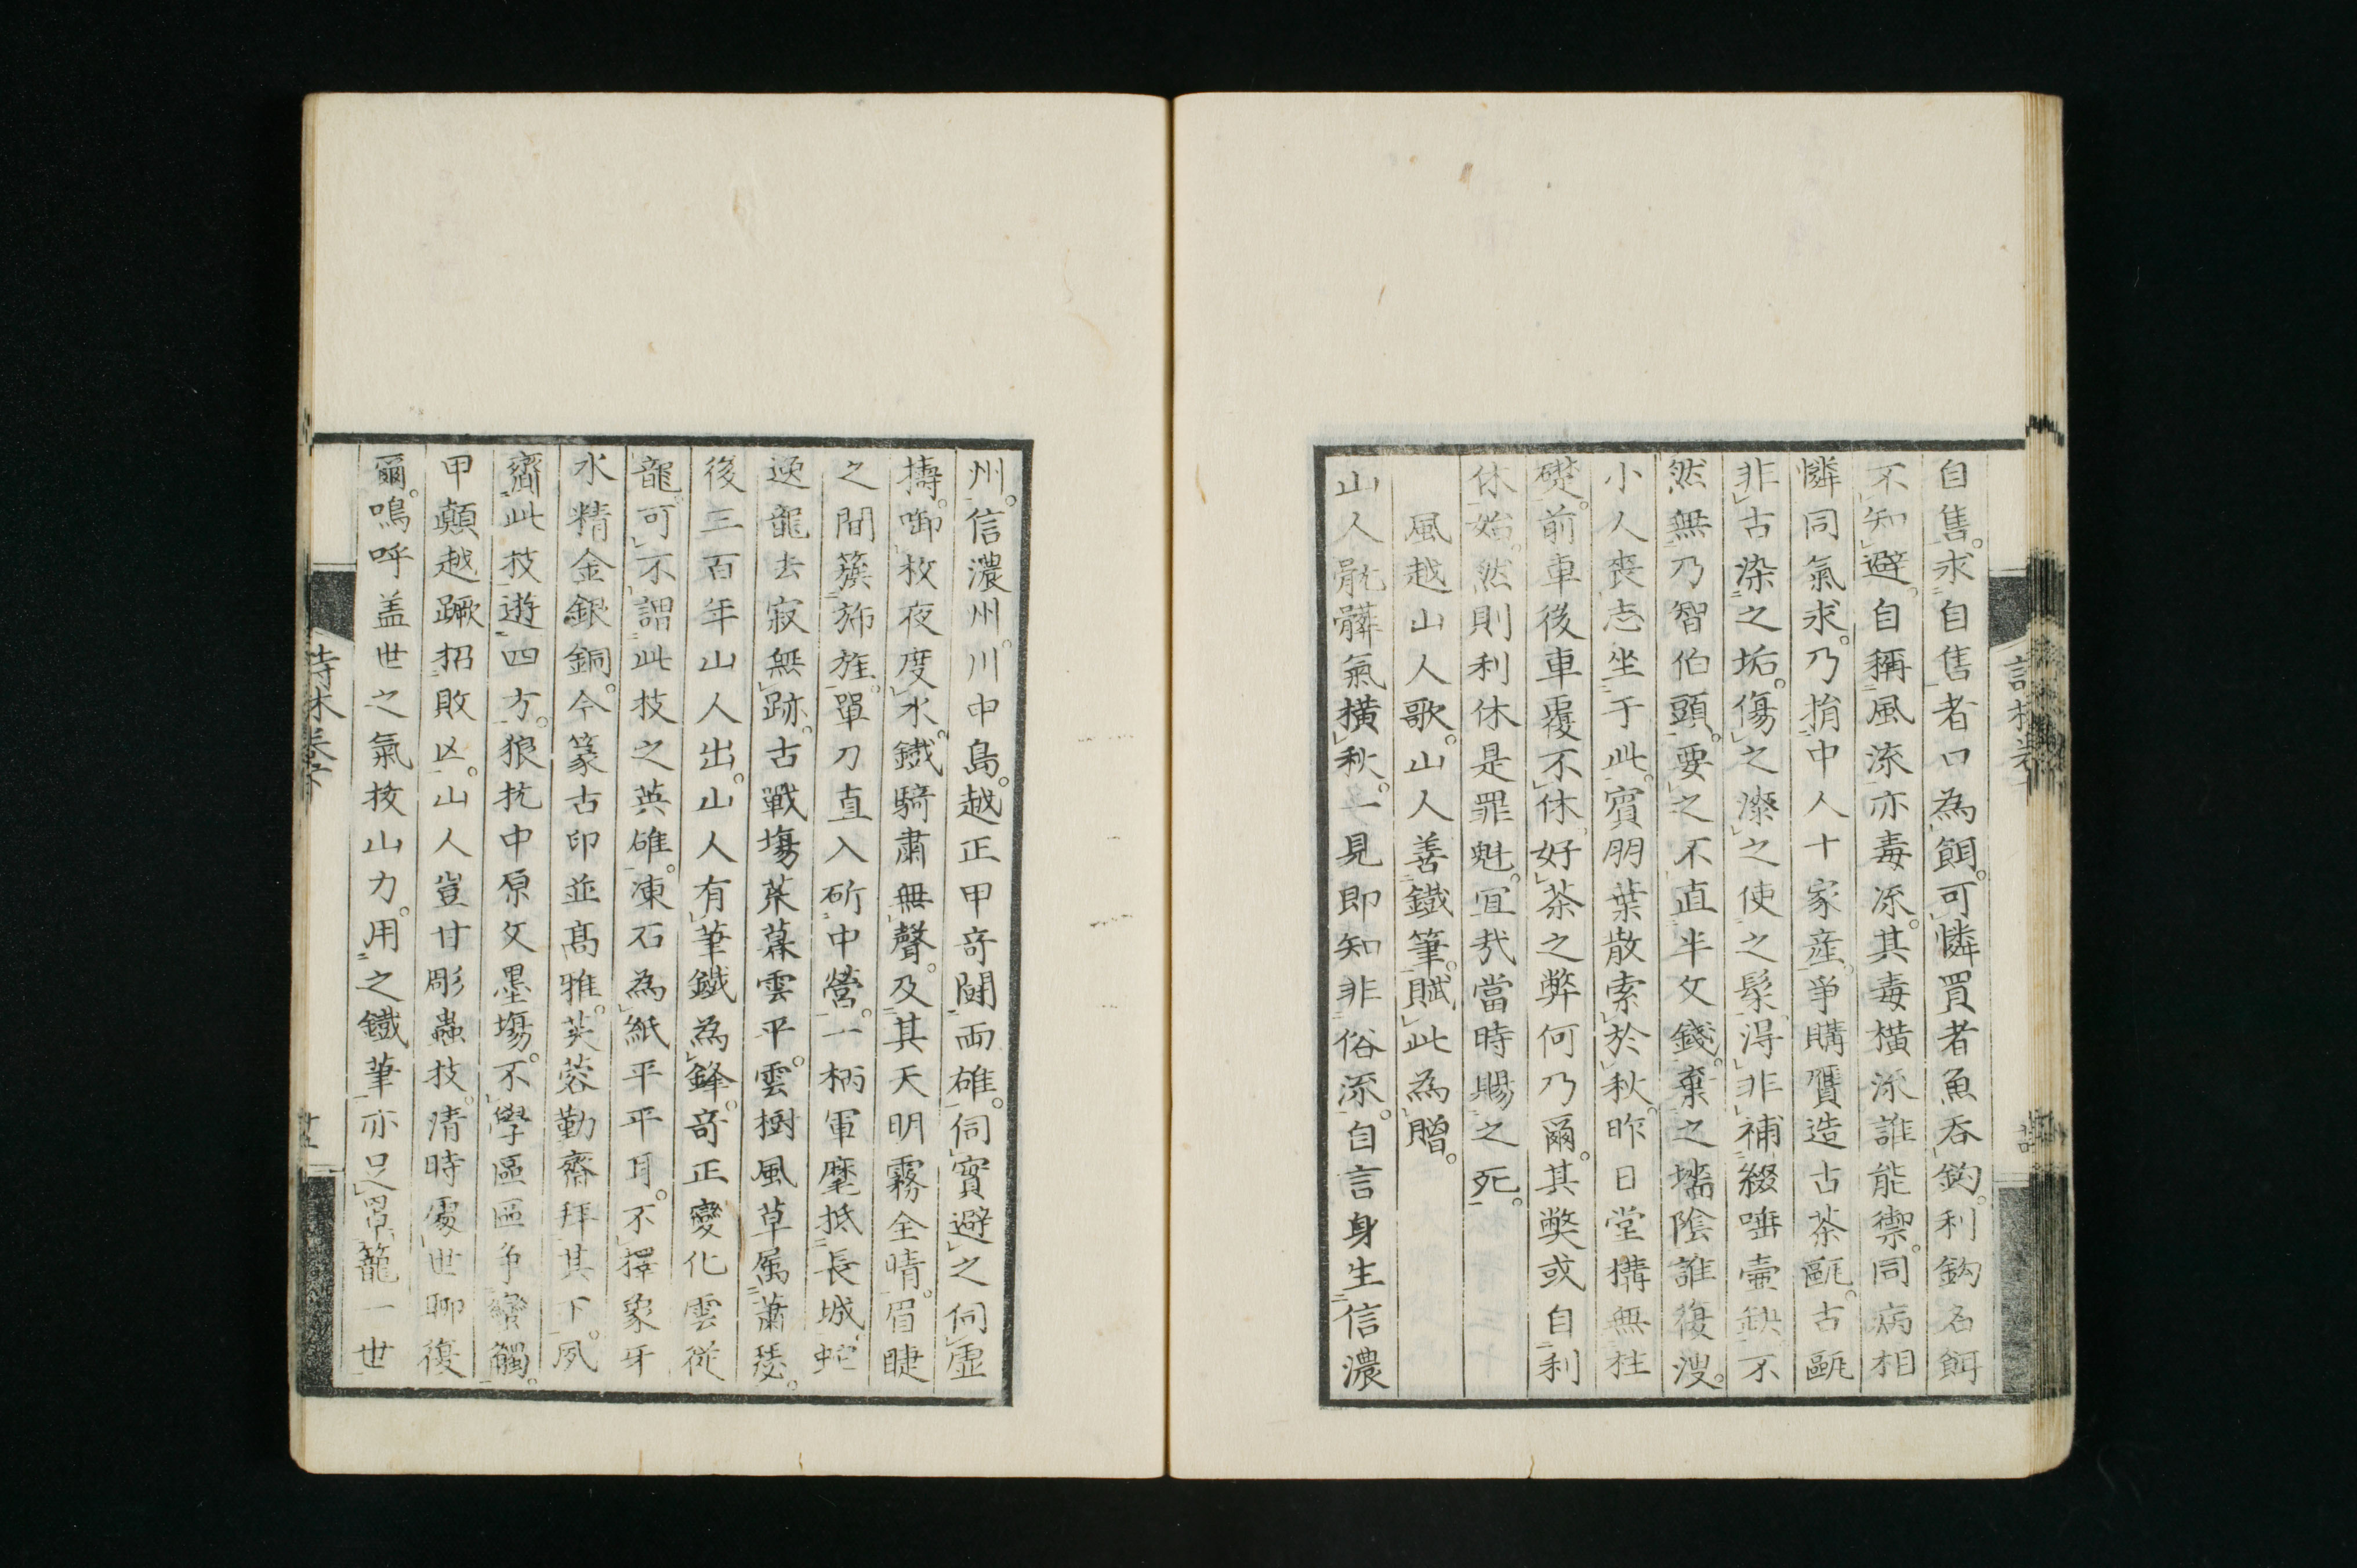 自售。求自售者口為餌。可憐買者魚吞鈎。利鈎名餌
不知避。自稱風流亦毒流。其毒橫流誰能禦。同病相
憐同氣求。乃捐中人十家産。争購贋造古茶甌。古甌
非古染之垢。傷之漆之使之髹。得非補綴唾壷缺。不
然無乃智伯頭。要之不直半文錢。棄之壖陰誰復溲。
小人喪志坐于此。賓朋葉散索於秋。昨日堂構無柱
礎。前車後車覆不休。好茶之弊何乃爾。其獘或自利
休始。然則利休是罪魁。宜㢤當時賜之死。
風越山人歌。山人善鐵筆。賦此為贈。
山人骯髒氣橫秋。一見即知非俗流。自言身生信濃
州。信濃州。川中島。越正甲奇鬪両雄。伺實避之伺虛
擣。啣枚夜度水。鐵騎肅無聲。及其天明霧全晴。眉睫
之間簇斾旌。單刀直入斫中營。一柄軍麾抵長城。蛇
逸龍去寂無跡。古戰場荒暮雲平。雲樹風草属蕭瑟。
後三百年山人出。山人有筆鐵為鋒。奇正變化雲從
龍。可不謂此技之英雄。凍石為紙平平耳。不擇象牙
水精金銀銅。今篆古印並髙雅。芙蓉勤齋拜其下。夙
齎此技遊四方。狼抗中原文墨場。不學區區争蠻觸。
甲顛越蹶招敗㐫。山人豈甘彫蟲技。清時處世聊復
爾。嗚呼盖世之氣抜山力。用之鐵筆亦足罥籠一世